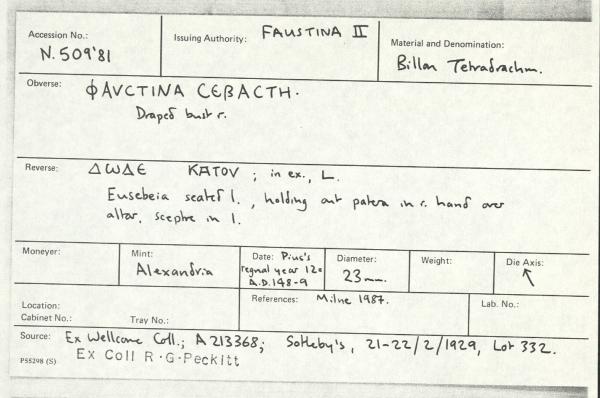 Accession No.: N.509'81
Issuing Authority: FAUSTINA II
Material and Denomination: Billon Tetradrachm.
Obverse: ΦAVCTINA CЄBACTH.
Draped bust r.
Reverse: ΔωΔЄ KATOV ; in ex., L.
Eusebeia seated l., holding out patera in r. hand over
altar, sceptre in l.
Moneyer:
Mint: Alexandria
Date: Pius's
regnal year 12=
A.D.148-9
Diameter: 23mm.
Weight:
Die Axis: ↖
Location:
Cabinet No.: Tray No.:
References: Milne 1987.
Lab. No.:
Source: Ex Wellcome Coll.; A213368; Sotheby's, 21-22/2/1929, Lot 332.
P55298 (S) Ex Coll R.G.Peckitt